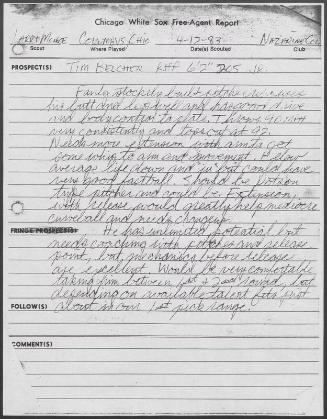 Chicago White Sox Free-Agent Report
Larry Monroe Columbus, Ohio 4-17-83 Nazarene Col.
Scout Where Played Date Scouted Club
PROSPECT(S) Tim Belcher RHP 6'2" 205 Jr.
Fairly stockily built pitcher who uses
his butt and legs well and has good drive
and body control to plate. Throws 90 MPH
very consistently and tops out at 92.
Needs more extension with arm to get
some whip to arm and movement. Below
average life down and in but could have
very good fastball. Should be
type pitcher and could be. Extension,
with release would greatly help mediocre
curveball and needs change-up.
FRINGE PROSPECT(S) He has unlimited potential but
needs coaching with pitches and release
point, but, mechanics before release
are excellent. Would be very comfortable
taking him between 1st + 2nd round, but
depending on available talent fits
about in our 1st pick range.
FOLLOW(S)
COMMENT(S)